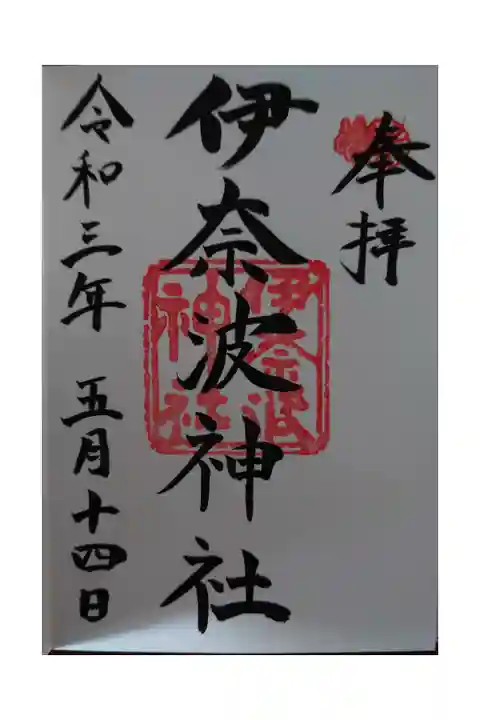 奉拝
伊奈波神社
伊奈波
神社
令和三年 五月十四日